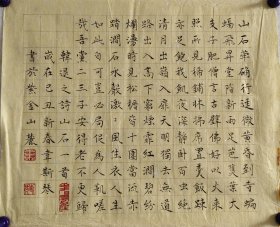 山石犖确行徑微黃昏到寺蝙
蝠飛昇堂坐階新雨足芭蕉葉大
支子肥僧言古壁佛畫好以火來
照所見稀鋪床拂席置羹飯疎糲
亦足飽我飢夜深靜卧百蟲絕
清月出嶺光入扉天明獨去無道
路出入高下窮煙霏山紅澗碧紛
爛漫時見松櫪皆十圍當流赤足
蹋澗石水聲激〻風生衣人生
如此自可樂豈必局束為人鞿嗟
哉吾黨二三子安得至老不更歸
韓退之詩山石一首
歲在己丑新春韋斯琴
書於紫金山麓